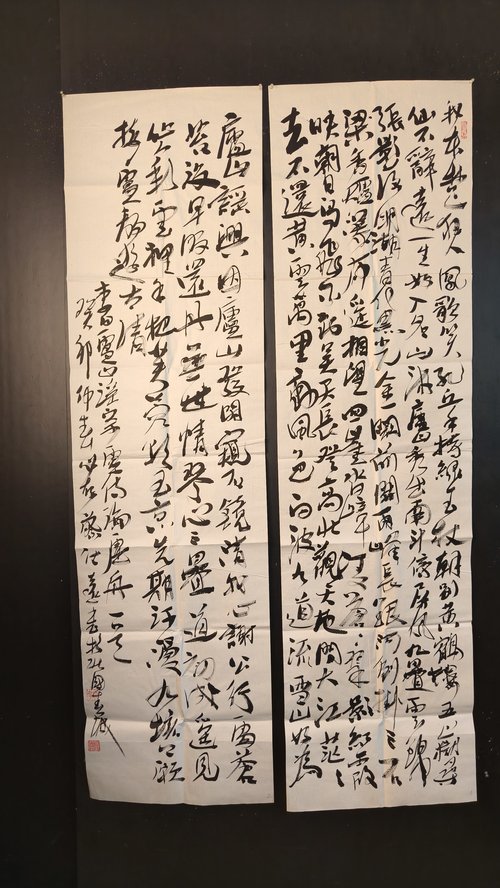 我本楚狂人鳳歌笑孔丘手持綠玉杖朝別黃鶴樓五岳尋
仙不辭遠一生好入名山游廬山秀出南斗傍屏風九疊雲錦
張影落明湖青黛光金闕前開二峰長銀河倒掛三石
梁香爐瀑布遙相望迴崖沓嶂凌蒼蒼翠影紅霞
映朝日鳥飛不到吳天長登高壯觀天地間大江茫茫
去不還黃雲萬里動風色白波九道流雪山好為
廬山謠興因廬山發閑窺石鏡清我心謝公行處蒼
苔沒早服還丹無世情琴心三疊道初成遙見
仙人彩雲裡手把芙蓉朝玉京先期汗漫九垓上願
接盧敖遊太清
李白廬山謠寄盧侍御虛舟一首
癸卯仲春